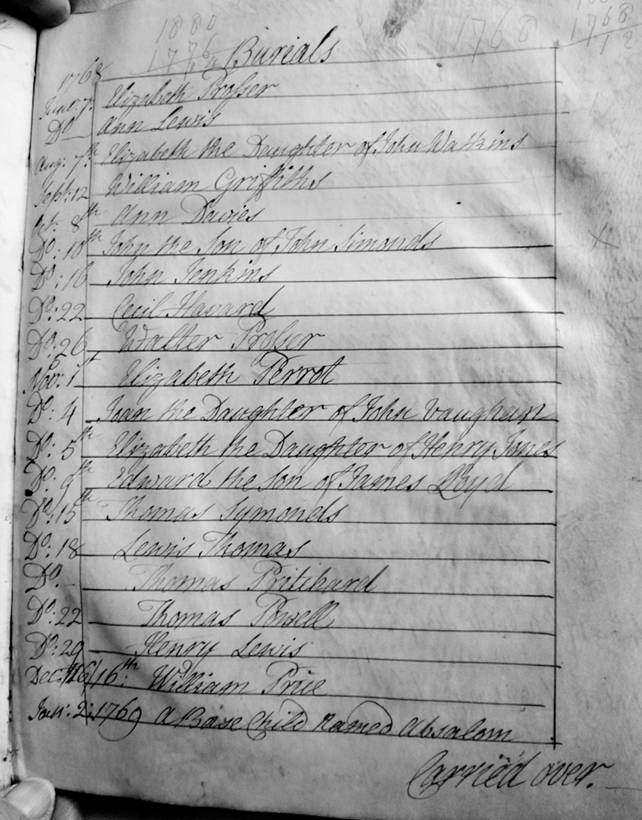 1880
1776
1768
1768
12
Burials
1768
June: 7: Elizabeth Prosser
Do Ann Lewis
Aug: 7th Elizabeth the Daughter of John Watkins
Sept: 12 William Griffiths
8th Ann Davies
Do: 10th John the Son of John Simonds
Do: 16 John Jenkins
Do: 22 Cecil Havard
Do: 26 Walter Prosser
Nov: 1st Elizabeth Perrot
Do: 4 Joan the Daughter of John Vaughan
Do: 5th Elizabeth the Daughter of Henry Jones
Do: 9th Edward the Son of James Lloyd
Do: 15th Thomas Symonds
Do: 18 Lewis Thomas
Do. Thomas Pritchard
Do: 22 Thomas Powell
Do: 29 Henry Lewis
Dec: 16th: William Price
Jan: 2: 1769 A Base Child Named Absalom
Carried over.